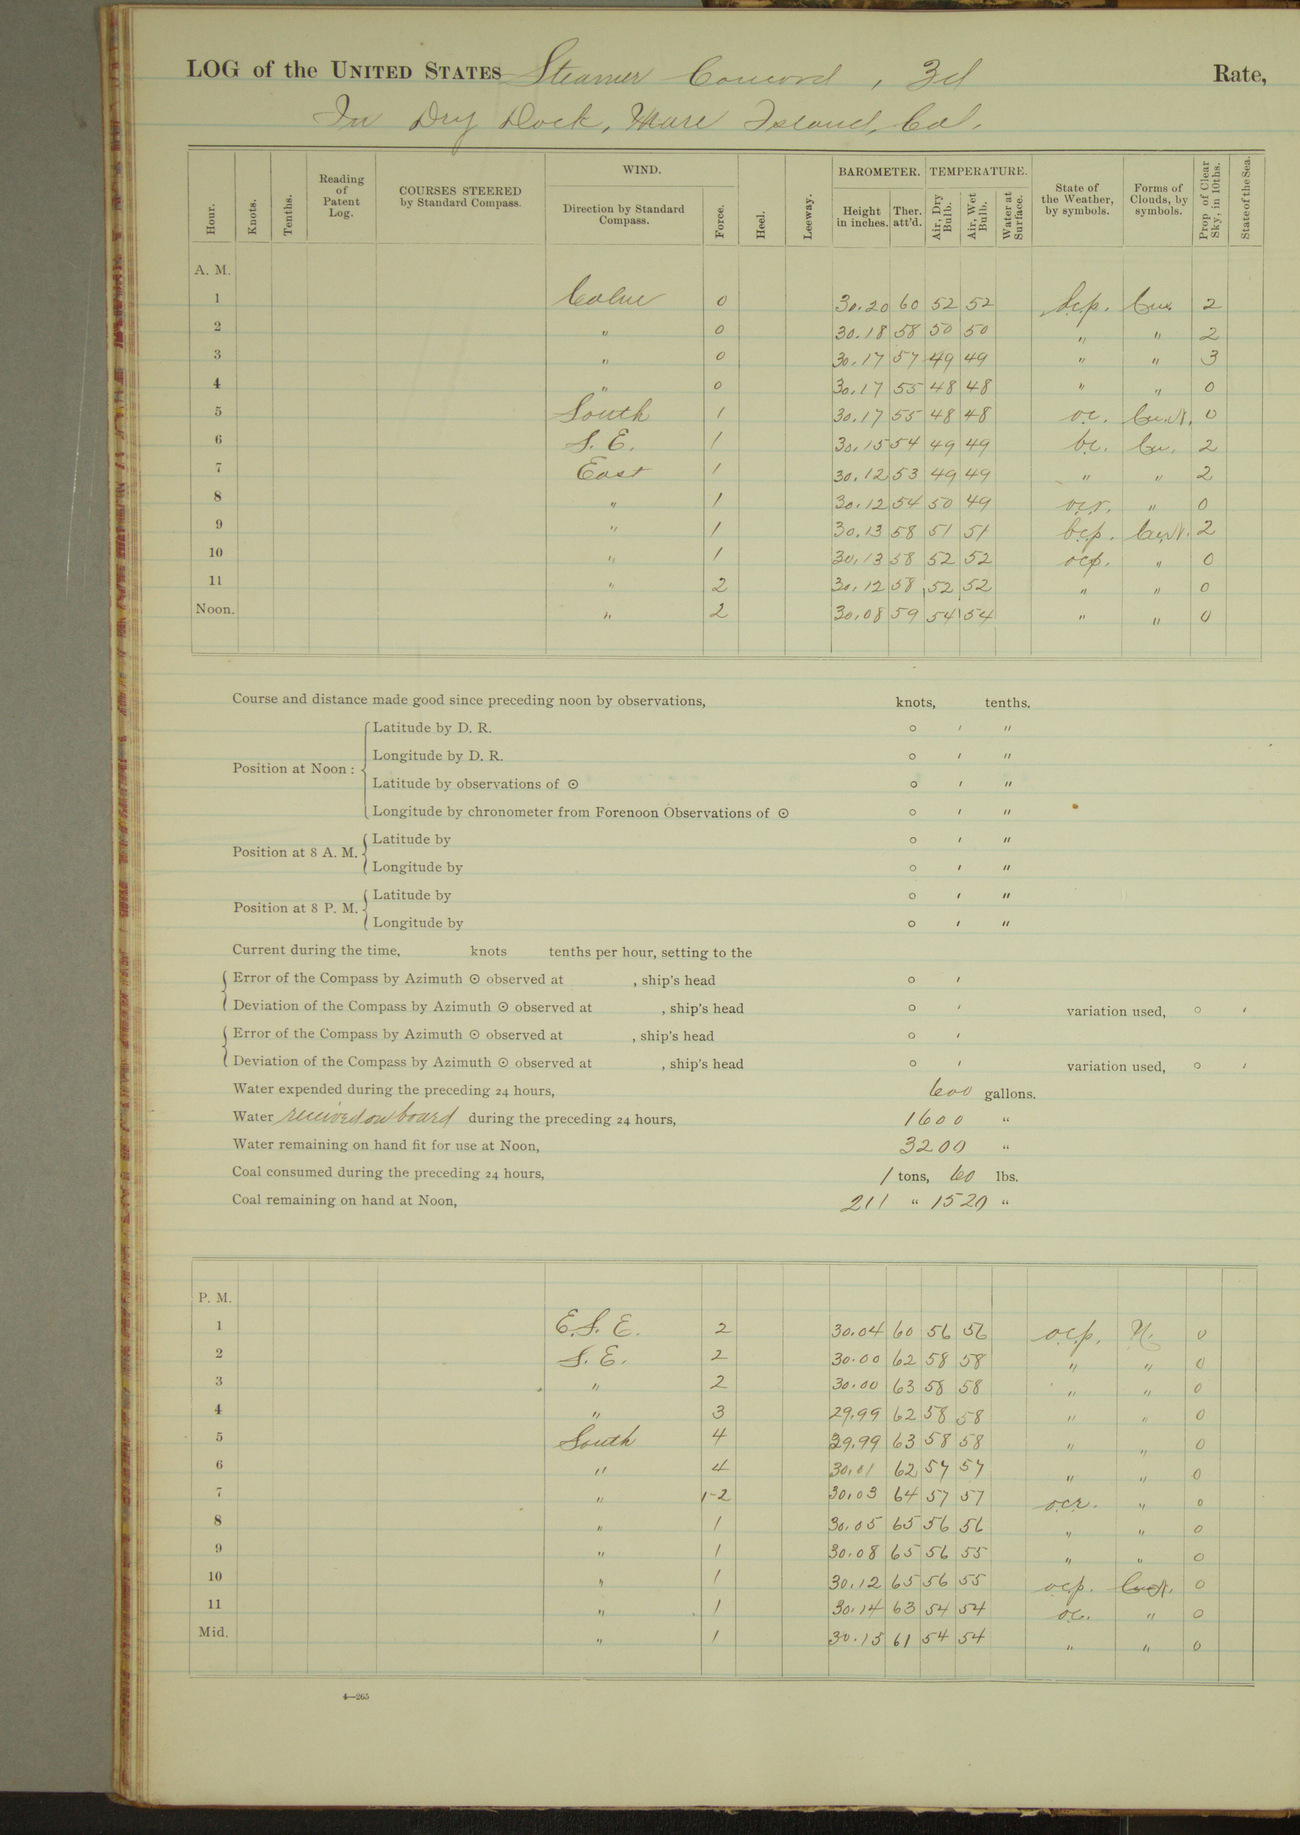 LOG of the UNITED STATES Steamer Concord, 3d Rate,
In Dry Dock, Mare Island, Cal.
Hour. Knots. Tenths. Reading of Patent Log. COURSES STEERED by Standard Compass. WIND. Direction by Standard Compass. Force. Heel. Leeway. BAROMETER. Height in inches. Ther. att'd. TEMPERATURE. Air, Dry Bulb. Air, Wet Bulb. Water at Surface. State of the Weather, by symbols. Forms of Clouds, by symbols. Prop. of Clear Sky, in 10ths. State of the Sea.
A. M.
1 Calm 0 30.20 60 52 52 b.c.p. Cu. 2
2 " 0 30.18 58 50 50 " " 2
3 " 0 30.17 57 49 49 " " 3
4 " 0 30.17 55 48 48 " " 0
5 South 1 30.17 55 48 48 o.c. Cu.N. 0
6 S. E. 1 30.15 54 49 49 b.c. Cu. 2
7 East 1 30.12 53 49 49 " " 2
8 " 1 30.12 54 50 49 o.c.r. " 0
9 " 1 30.13 58 51 51 b.c.p. Cu.N. 2
10 " 1 30.13 58 52 52 o.c.p. " 0
11 " 2 30.12 58 52 52 " " 0
Noon. " 2 30.08 59 54 54 " " 0
Course and distance made good since preceding noon by observations, knots, tenths.
Position at Noon: Latitude by D. R. ° ′ ″
Longitude by D. R. ° ′ ″
Latitude by observations of ☉ ° ′ ″
Longitude by chronometer from Forenoon Observations of ☉ ° ′ ″
Position at 8 A. M. Latitude by ° ′ ″
Longitude by ° ′ ″
Position at 8 P. M. Latitude by ° ′ ″
Longitude by ° ′ ″
Current during the time, knots tenths per hour, setting to the
Error of the Compass by Azimuth ☉ observed at , ship's head ° ′
Deviation of the Compass by Azimuth ☉ observed at , ship's head ° ′ variation used, ° ′
Error of the Compass by Azimuth ☉ observed at , ship's head ° ′
Deviation of the Compass by Azimuth ☉ observed at , ship's head ° ′ variation used, ° ′
Water expended during the preceding 24 hours, 600 gallons.
Water received on board during the preceding 24 hours, 1600 "
Water remaining on hand fit for use at Noon, 3200 "
Coal consumed during the preceding 24 hours, 1 tons, 60 lbs.
Coal remaining on hand at Noon, 211 " 1520 "
P. M.
1 E. S. E. 2 30.04 60 56 56 o.c.p. N. 0
2 S. E. 2 30.00 62 58 58 " " 0
3 " 2 30.00 63 58 58 " " 0
4 " 3 29.99 62 58 58 " " 0
5 South 4 29.99 63 58 58 " " 0
6 " 4 30.01 62 57 57 " " 0
7 " 1-2 30.03 64 57 57 o.c.r. " 0
8 " 1 30.05 65 56 56 " " 0
9 " 1 30.08 65 56 55 " " 0
10 " 1 30.12 65 56 55 o.c.p. Cu.N. 0
11 " 1 30.14 63 54 54 o.c. " 0
Mid. " 1 30.15 61 54 54 " " 0
4—265